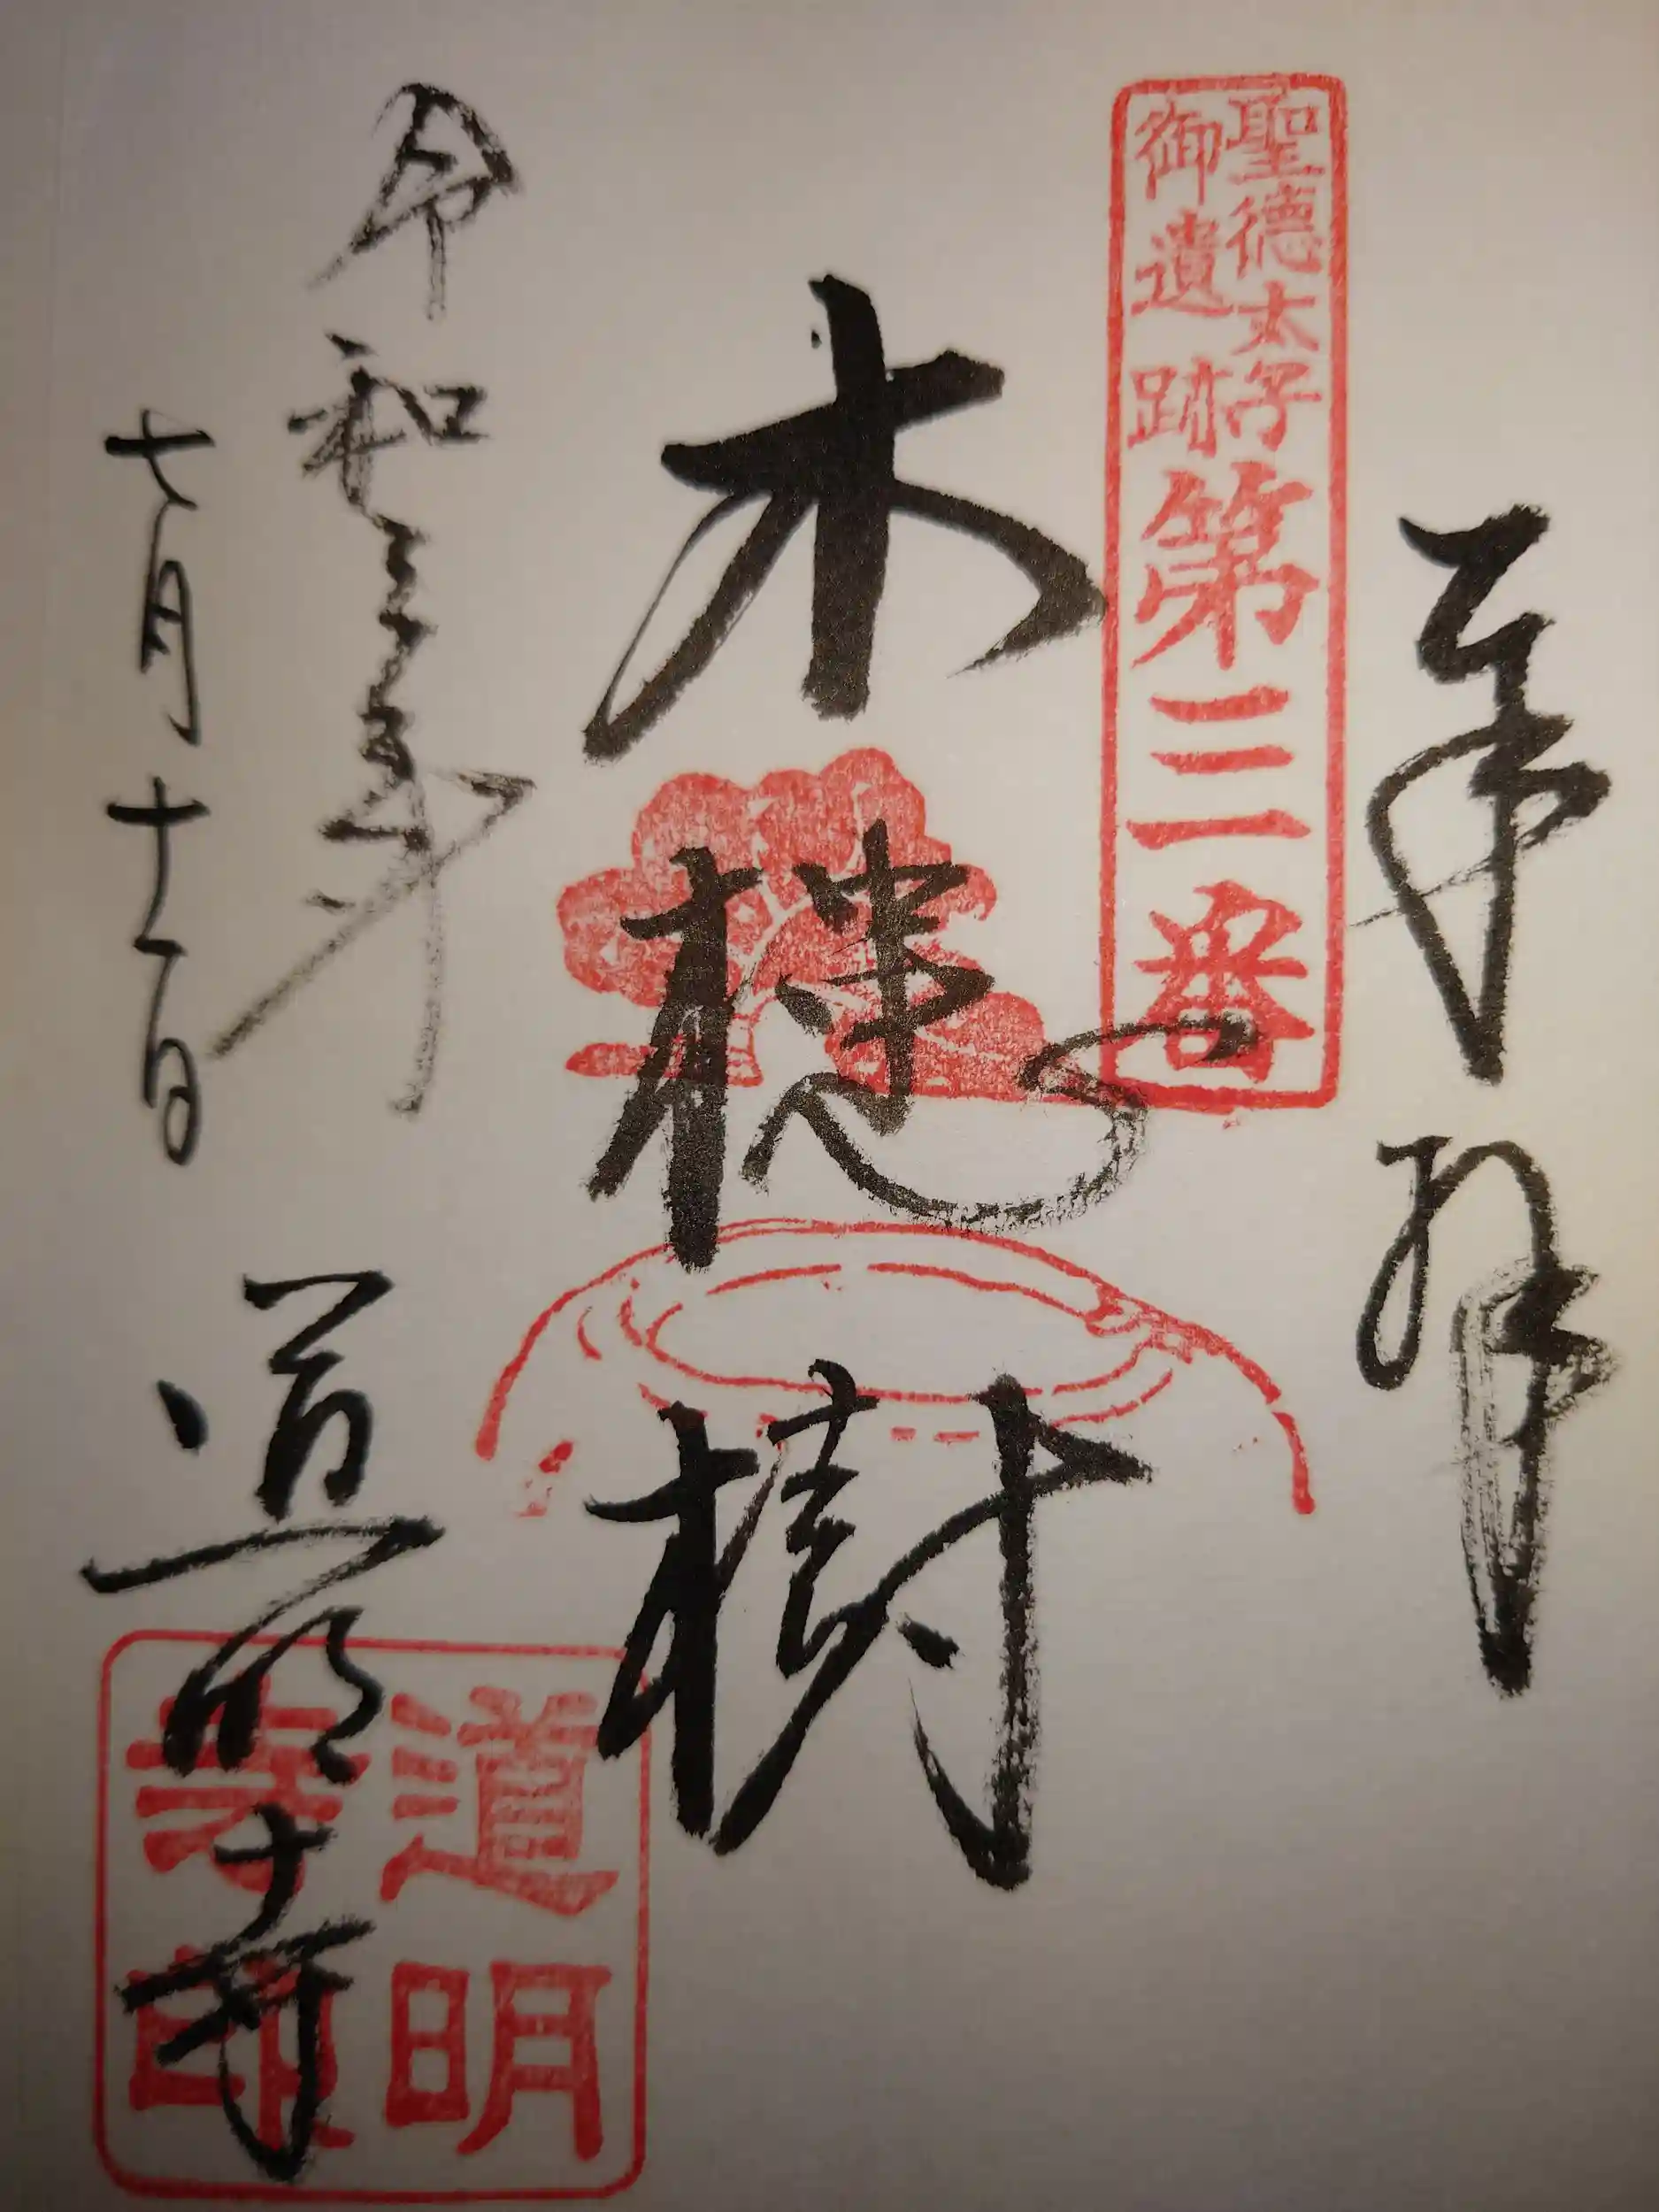 奉拝
聖徳太子
御遺跡
第三番
木槵樹
令和三年
七月十一日
道明寺
道明
寺印